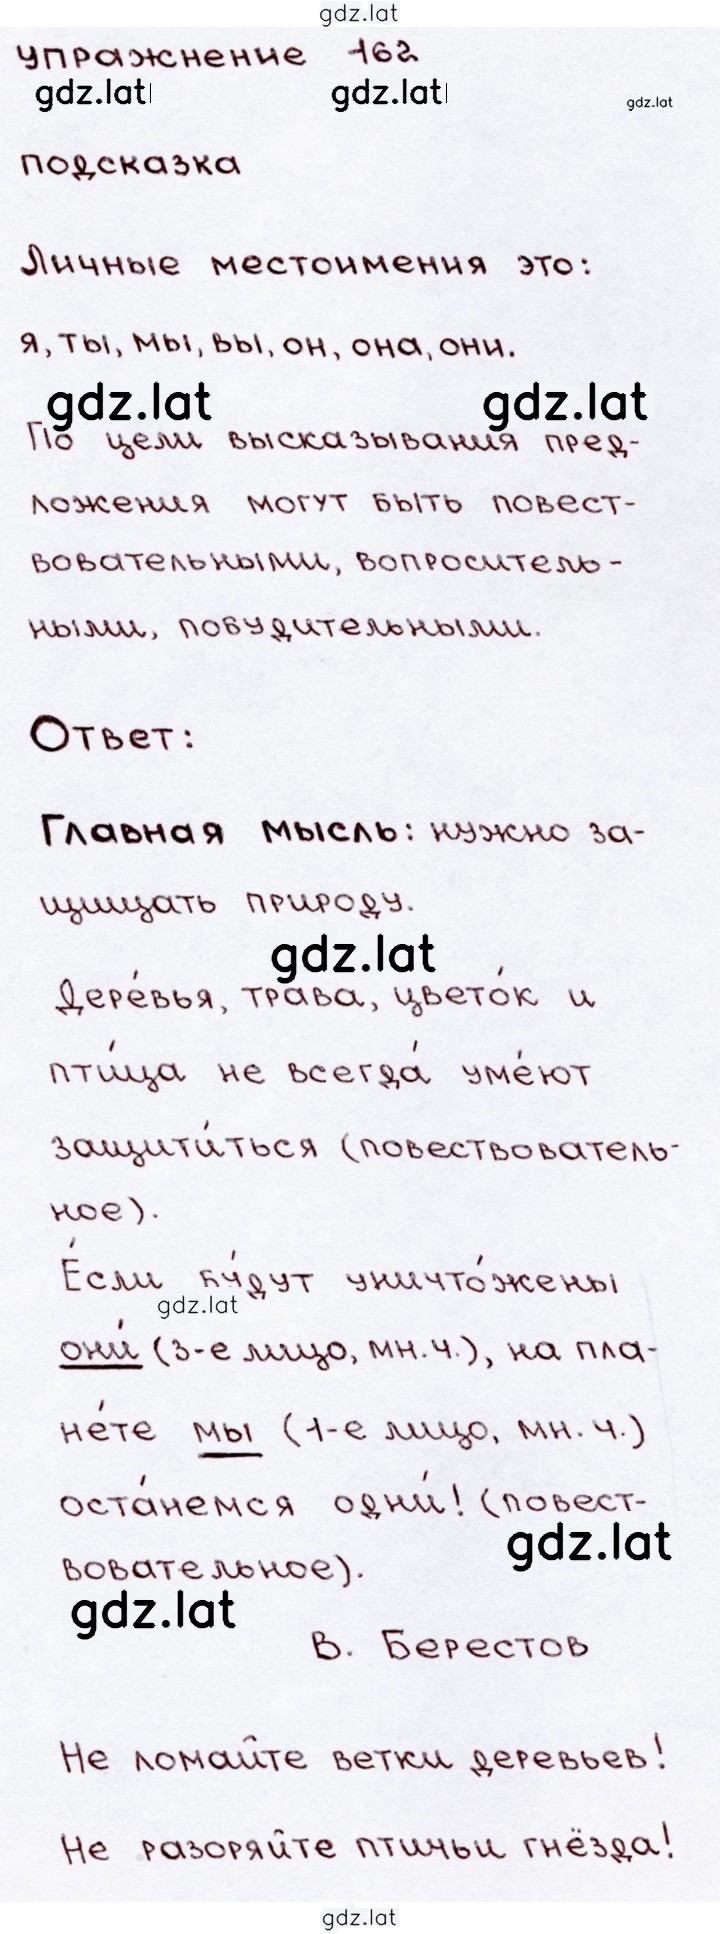 gdz.lat
упражнение 162
gdz.lat gdz.lat gdz.lat
подсказка
Личные местоимения это:
я, ты, мы, вы, он, она, они.
gdz.lat gdz.lat
По цели высказывания пред-
ложения могут быть повест-
вовательными, вопроситель-
ными, побудительными.
Ответ:
Главная мысль: нужно за-
щищать природу.
gdz.lat
Дере́вья, трава́, цвето́к и
пти́ца не всегда́ уме́ют
защити́ться (повествователь-
ное).
Е́сли бу́дут уничто́жены
gdz.lat
они́ (3-е лицо, мн.ч.), на пла-
не́те мы (1-е лицо, мн. ч.)
оста́немся одни́! (повест-
gdz.lat
вовательное).
gdz.lat
В. Берестов
Не ломайте ветки деревьев!
Не разоряйте птичьи гнёзда!
gdz.lat